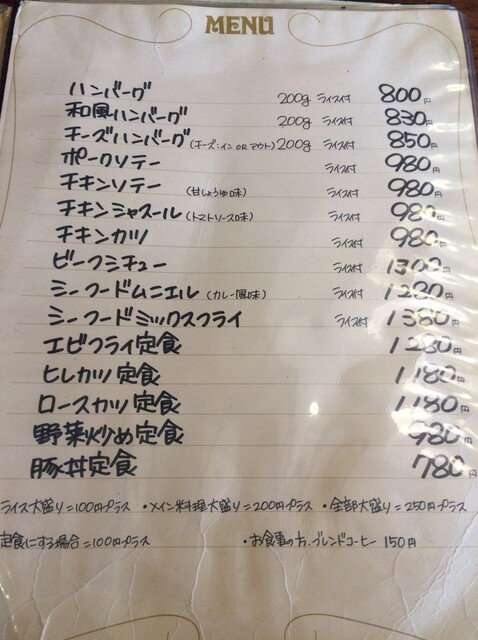 MENU
ハンバーグ 200g ライス付 800円
和風ハンバーグ 200g ライス付 830円
チーズハンバーグ(チーズ:イン OR アウト) 200g ライス付 850円
ポークソテー ライス付 980円
チキンソテー (甘しょうゆ味) ライス付 980円
チキンシャスール (トマトソース味) ライス付 980円
チキンカツ ライス付 980円
ビーフシチュー ライス付 1300円
シーフードムニエル (カレー風味) ライス付 1280円
シーフードミックスフライ ライス付 1380円
エビフライ定食 1280円
ヒレカツ定食 1180円
ロースカツ定食 1180円
野菜炒め定食 980円
豚丼定食 780円
ライス大盛り=100円プラス ・メイン料理大盛り=200円プラス ・全部大盛り=250円プラス
定食にする場合=100円プラス ・お食事の方、ブレンドコーヒー 150円